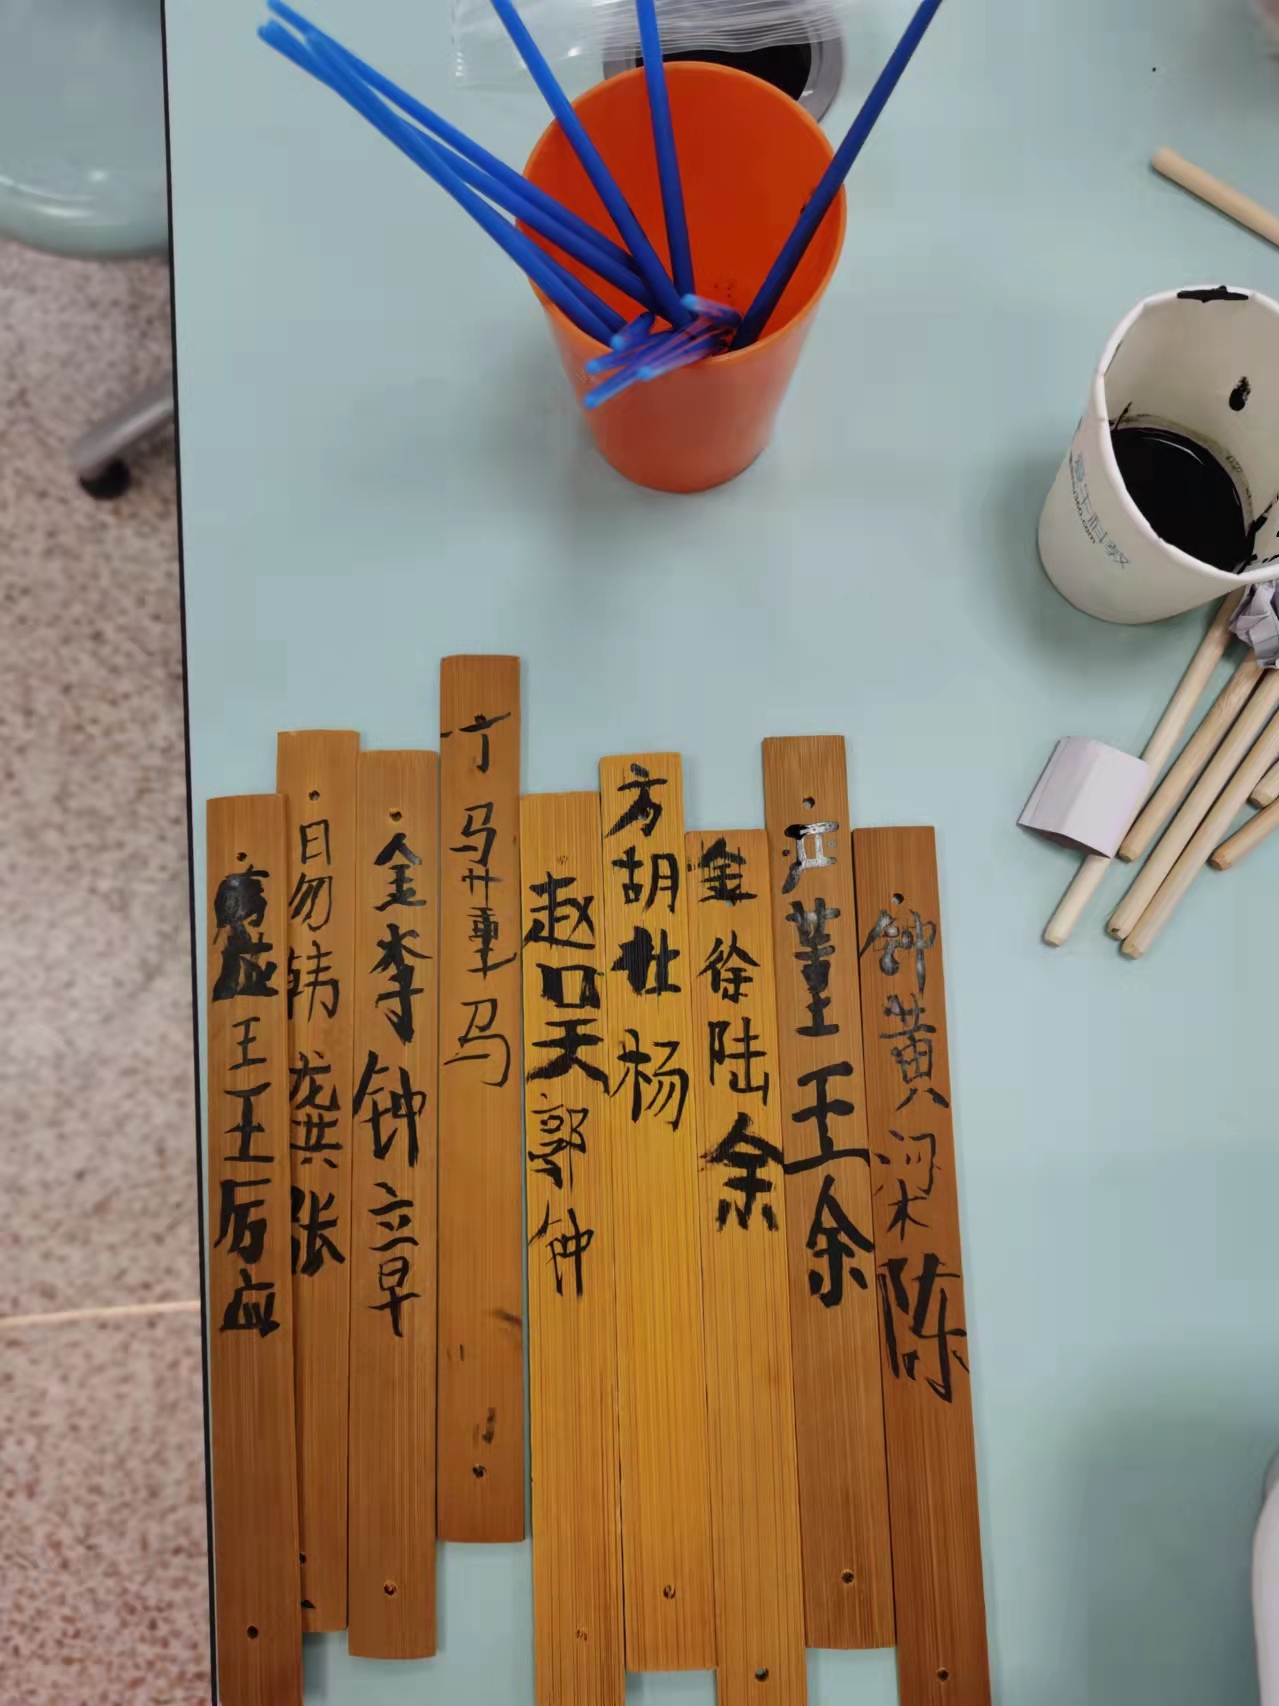 应王王厉应
易韩龚张
金李钟章
丁马董马
赵吴郭钟
方胡杜杨
金徐陆余
江董王余
钟黄梁陈